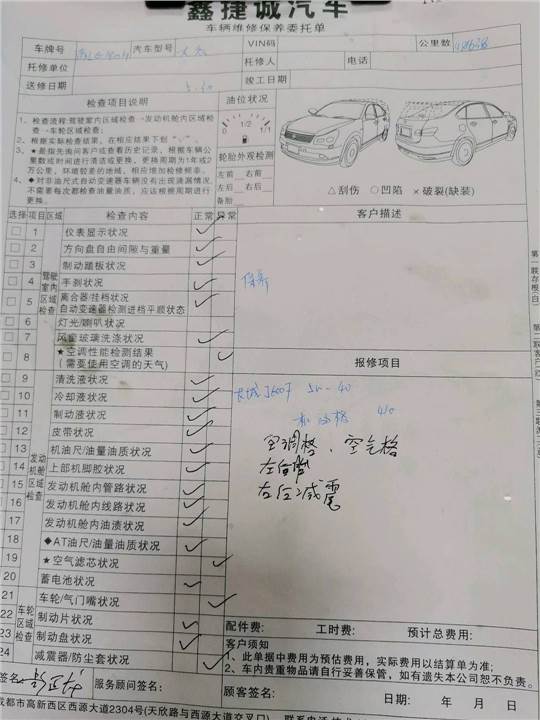 鑫捷诚汽车
车辆维修保养委托单
车牌号 汽车型号 VIN码 公里数
托修单位 托修人 电话
送修日期 5.30 竣工日期
检查项目说明
1、检查流程:驾驶室内区域检查→发动机舱内区域检查→车轮区域检查;
2、根据实际检查结果,在相应结果下划“√”。
3、★是指先询问客户或查看历史记录,根据车辆公里数或时间进行清洁或更换,更换周期为1年或2万公里,环境较差的地域,相应增加检修频率。
4、◆对非油尺式自动变速器车辆没有出现泄漏情况,不需要每次都检查油量油质,应该根据周期进行更换。
油位状况
0 1/2 1/1
轮胎外观检测
左前 右前
左后 右后
备胎
△刮伤 ○凹陷 ×破裂(缺装)
选择 项目 区域 检查内容 正常 异常
客户描述
驾驶室内区域检查
1 仪表显示状况 √
2 方向盘自由间隙与重量 √
3 制动踏板状况 √
4 手刹状况 √
5 离合器/挂档状况
自动变速器检测进档平顺状态 √
6 灯光/喇叭状况
7 风窗玻璃洗涤状况 √
8 ★空调性能检测结果
(需要使用空调的天气) √
保养
报修项目
发动机舱区域检查
9 清洗液状况 √
10 冷却液状况 √
11 制动液状况 √
12 皮带状况 √
13 机油尺/油量油质状况 √
14 上部机脚胶状况 √
15 发动机舱内管路状况 √
16 发动机舱内线路状况 √
17 发动机舱内油渍状况 √
18 ◆AT油尺/油量油质状况 √
19 ★空气滤芯状况 √
20 蓄电池状况 √
车轮区域检查
21 车轮/气门嘴状况 √
22 制动片状况 √
23 制动盘状况 √
24 减震器/防尘套状况 √
长城J600F 5W-40
机油格 410
空调格、空气格
左后
右后减震
配件费: 工时费: 预计总费用:
客户须知
1、此单据中费用为预估费用,实际费用以结算单为准;
2、车内贵重物品请自行妥善保管,如有遗失本公司恕不负责。
签名: 服务顾问签名: 顾客签名: 日期: 年 月 日
成都市高新西区西源大道2304号(天欣路与西源大道交叉口)
第一联存根(白)